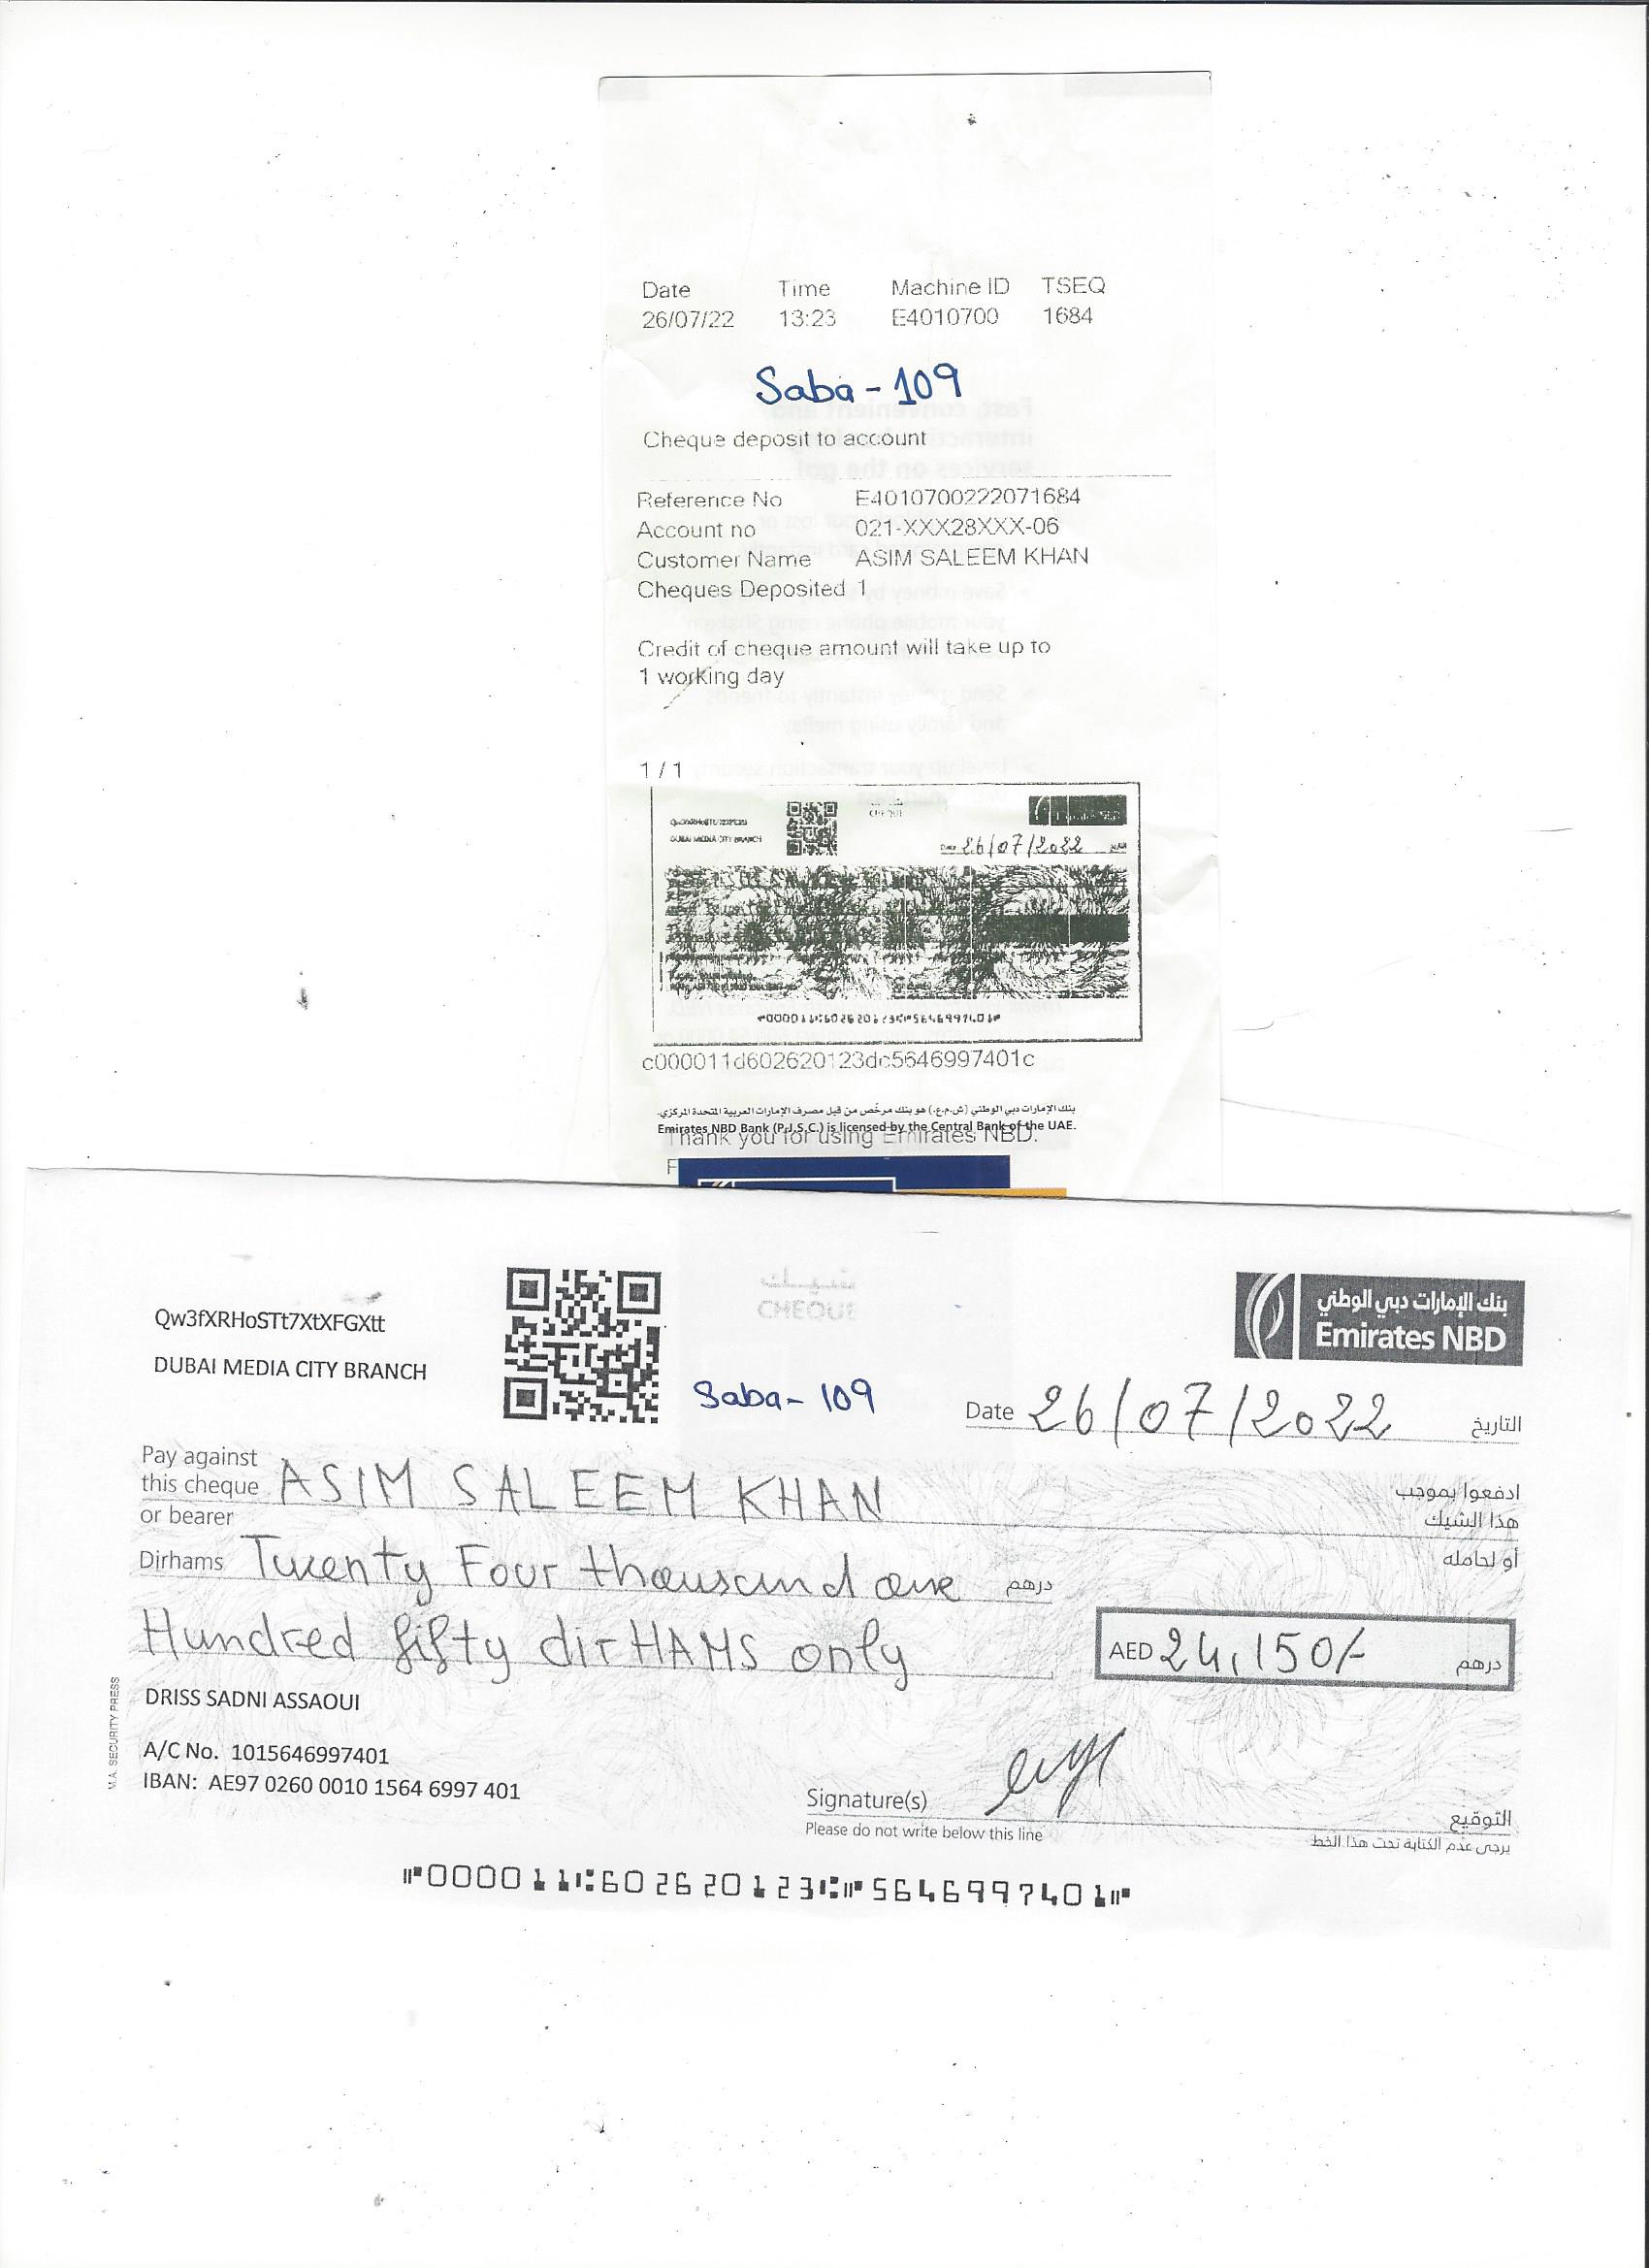 Date Time Machine ID TSEQ
26/07/22 13:23 E4010700 1684
Saba - 109
Cheque deposit to account
Reference No E4010700222071684
Account no 021-XXX28XXX-06
Customer Name ASIM SALEEM KHAN
Cheques Deposited 1
Credit of cheque amount will take up to
1 working day
1 / 1
DUBAI MEDIA CITY BRANCH
Date 26/07/2022
c000011d602620123dc5646997401c
بنك الإمارات دبي الوطني (ش.م.ع.) هو بنك مرخّص من قبل مصرف الإمارات العربية المتحدة المركزي.
Emirates NBD Bank (P.J.S.C.) is licensed by the Central Bank of the UAE.
Thank you for using Emirates NBD.
بنك الإمارات دبي الوطني
Emirates NBD
CHEQUE
Qw3fXRHoSTt7XtXFGXtt
DUBAI MEDIA CITY BRANCH
Saba - 109
Date 26/07/2022 التاريخ
Pay against
this cheque
or bearer
ASIM SALEEM KHAN
ادفعوا بموجب
هذا الشيك
أو لحامله
Dirhams Twenty Four thousand one درهم
Hundred fifty dirHAMS only
AED 24,150/- درهم
DRISS SADNI ASSAOUI
A/C No. 1015646997401
IBAN: AE97 0260 0010 1564 6997 401
M.A. SECURITY PRESS
Signature(s) التوقيع
Please do not write below this line يرجى عدم الكتابة تحت هذا الخط
⑈000011⑆602620123⑆⑈5646997401⑈